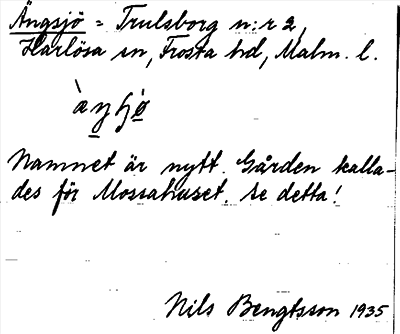 Ängsjö = Trulsborg n:r 2,
Harlösa sn, Frosta hd, Malm. l.
Namnet är nytt. Gården kalla-
des för Mossahuset. Se detta!
Nils Bengtsson 1935